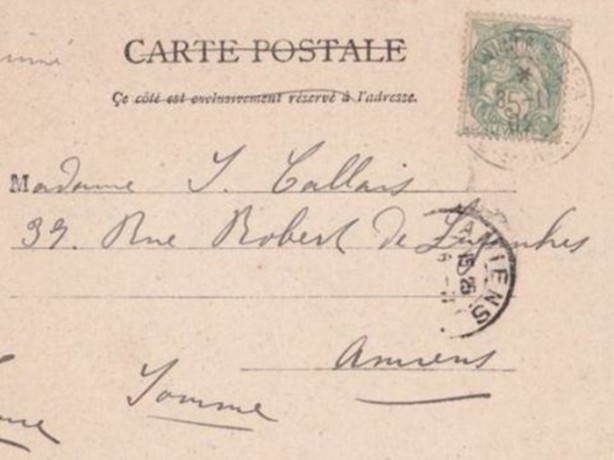 CARTE POSTALE
Ce côté est exclusivement réservé à l'adresse.
Madame J. Callais
39. Rue Robert de Luzarches
AMIENS
Amiens
Somme